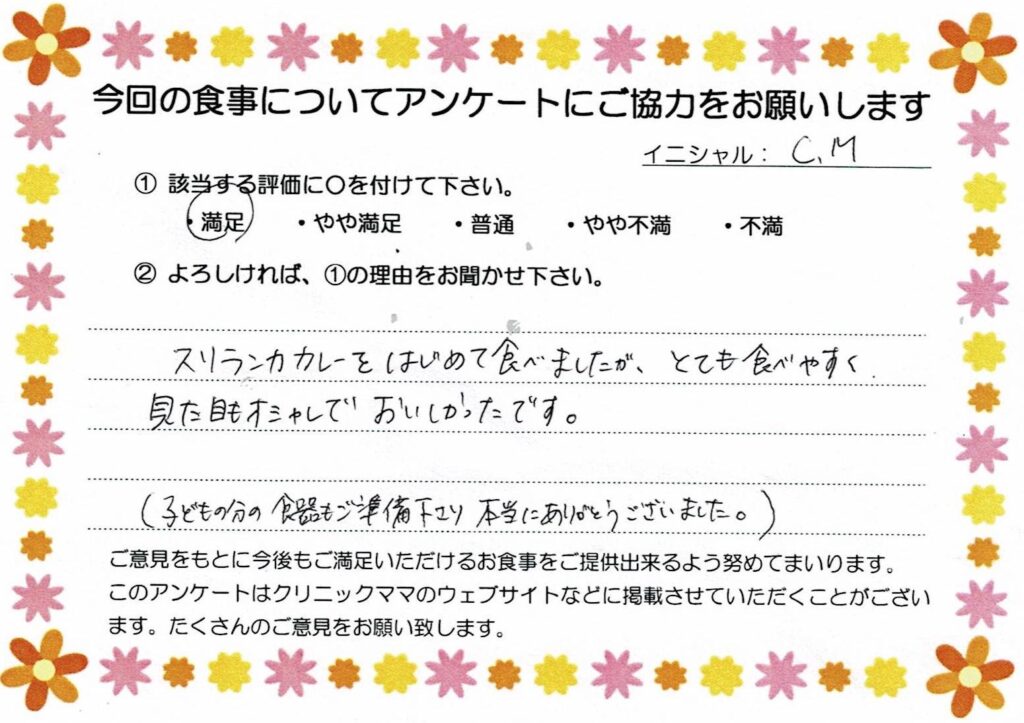 今回の食事についてアンケートにご協力をお願いします
イニシャル： C.M
① 該当する評価に〇を付けて下さい。
・満足 ・やや満足 ・普通 ・やや不満 ・不満
② よろしければ、①の理由をお聞かせ下さい。
スリランカカレーをはじめて食べましたが、とても食べやすく
見た目もオシャレで おいしかったです。
(子どもの分の食器もご準備下さり 本当にありがとうございました。)
ご意見をもとに今後もご満足いただけるお食事をご提供出来るよう努めてまいります。
このアンケートはクリニックママのウェブサイトなどに掲載させていただくことがござい
ます。たくさんのご意見をお願い致します。